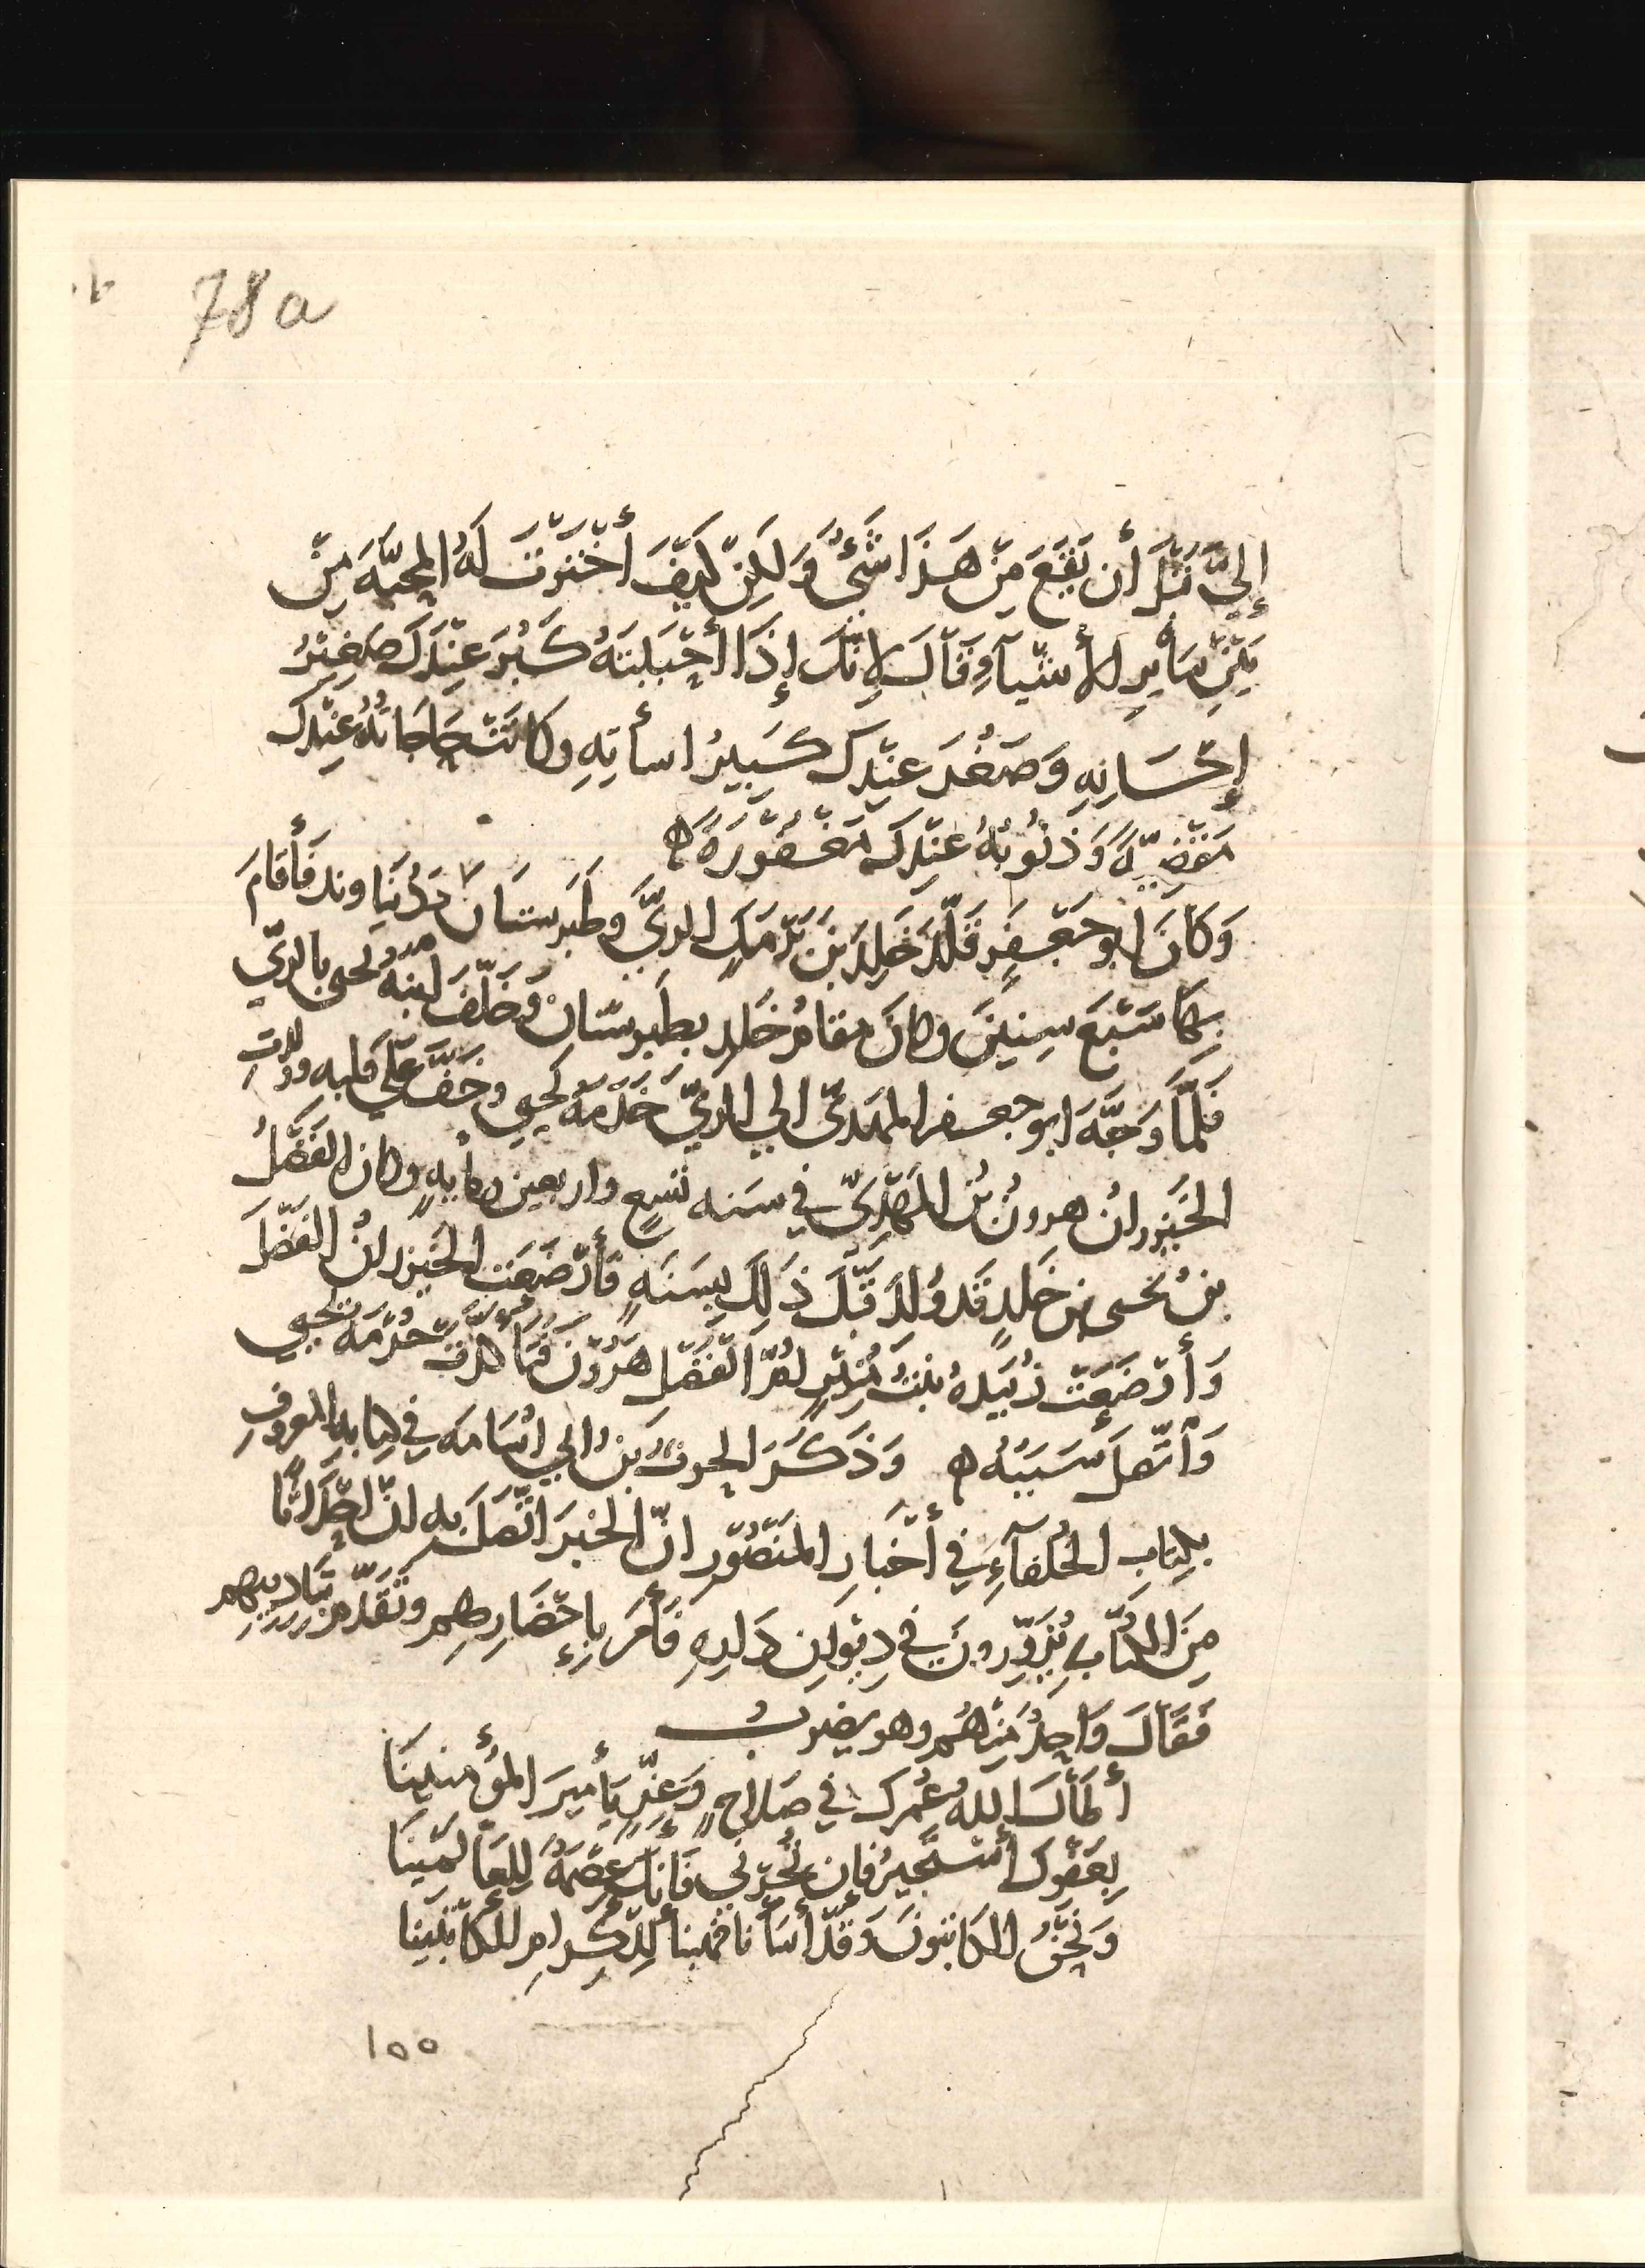 78a
إِلَيَّ قَبْلَ أن يَقَعَ مِنْ هَذَا شَيْءٌ وَلَكِنْ كَيْفَ أخْتَرْتَ لَهُ المحبَّةَ مِنْ
بَيْنِ سَائِرِ الأشْيَآءِ قَالَ لإنَّكَ إِذَا أحْبَبْتَهُ كَبُرَ عِنْدَكَ صَغِيْرُ
إِحْسَانِهِ وَصَغُرَ عِنْدَكَ كَبِيرُ اسأتِهِ وكانَتْ حَاجَاتُهُ عِنْدَكَ
مَقْضِيَّةً وَذنُوبُهُ عِنْدَكَ مَغْفُوْرَةً ه
وَكَانَ ابو جَعْفَرٍ قَلَّدَ خَلِدَ بْنَ بَرْمَكٍ الريَّ وطَبَرِستَانَ ودُنبَاوند فَأقامَ
بِهَا سَبْعَ سِنِيْنَ وكانَ مقامُ خَلدٍ بطَبرِستانَ وخَلَّفَ ابنَهُ يحيى بالريّ
فَلَمَّا وَجَّهَ ابو جعفر المهديّ الى الريّ خَدَمَهُ يحيى وخَفَّ عَلَى قلبه وولدتِ
الخَيْزرانُ هرونَ بْنَ المَهْدِيّ في سَنه تسعٍ واربعين ومايهٍ وكان الفَضْلُ
بنُ يحيى بن خَلدٍ قَد وُلدَ قَبْلَ ذَلِكَ بِسَنَهٍ فَأرْضَعَت الخَيْزرانُ الفَضْلَ
وَأرْضَعَتْ زُبَيْدهُ بنتُ مُنِيْرٍ امُّ الفَضْلِ هَرُوْنَ فَتَأكدَتْ حُرْمَةُ يَحْيى
وَاتَّصلَ سَبَبُهُ ه وَذَكَرَ الحرثُ بْنُ ابي اُسَامَه فِي كِتَابهِ المعروفِ
بِكِتَابِ الخُلَفَآءِ فِي أخْبَارِ المَنْصُوْر انّ الخبَرَ اتَّصَلَ به انَّ احْدَاثًا
مِنَ الكُتَّابِ يُزَوِّرونَ في دِيْوانِ دَارِهِ فَأمَرَ بِإحْضَارِهِم وتَقَدَّمَ بتَادِيبهِم
فَقَالَ وَاحِدٌ مِنْهُم وهو يضربُ
أطَالَ اللهُ عُمرَكَ في صَلاحٍ وَعِزٍّ يَا أمِيرَ المُؤْمنِينَا
بِعَفْوِكَ أسْتَجيْرُ فإن تُجرْني فَإنَّكَ عِصْمَةٌ لِلعَالَمِينَا
وَنَحْنُ الكاتبُونَ وَقَدْ أسَأْنَا فهَبنَا لِلْكِرامِ الكَاتبِينَا
١٥٥